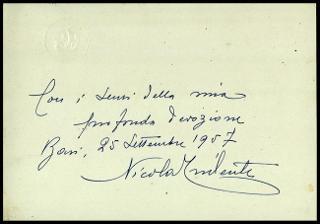 Con i sensi della mia
profonda devozione
Bari, 25 Settembre 1957
Nicola